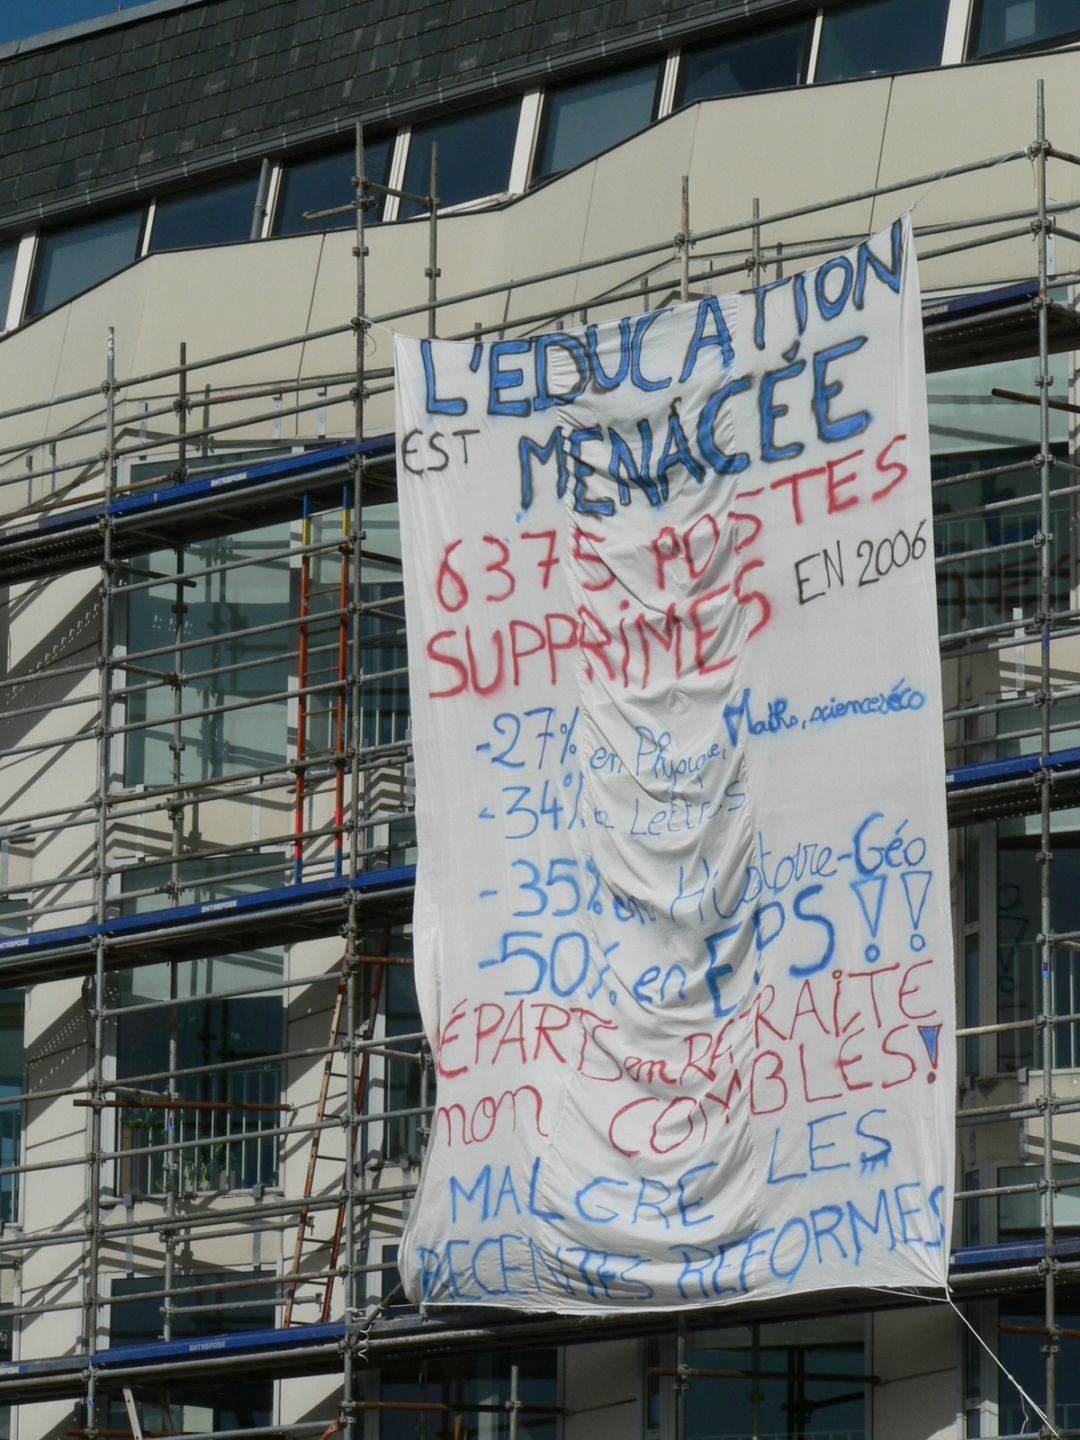 L'EDUCATION
EST MENACÉE
6375 POSTES
SUPPRIMES EN 2006
-27% en Physique, Maths, sciences éco
-34% Lettres
-35% en Histoire-Géo
-50% en EPS !!
ÉPARTS en RETRAITE
non COMBLÉS!
MALGRE LES
RECENTES REFORMES
ENTREPOSE
ENTREPOSE
ENTREPOSE
ENTREPOSE
ENTREPOSE
ENTREPOSE